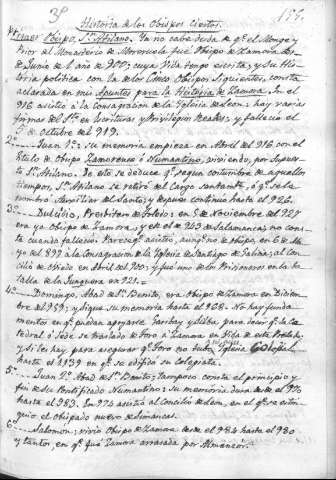 3º
177.
Historia de los Obispos Ciertos.
Primer Obispo, Sn. Atilano. Ya no cabe duda de q.e el Monge y
Prior del Monasterio de Moreruela fué Obispo de Zamora
de Junio de l año de 900; cuya Vida tengo escrita, y su His-
toria politica con la de los Cinco Obispos Siguientes, consta
aclarada en mis Apuntes para la Historia de Zamora. En el
916 asistió á la Consagracion de la Yglesia de Leon: hay varias
firmas del Sto. en Escrituras y Privilegios Reales: y falleció el
5 de Octubre del 919.
2º Juan 1º: su memoria empieza en Abril del 916 con el
titulo de Obispo Zamorense ó Numantino, viviendo, por Supues-
to Sn. Atilano. De esto se deduce q.e segun costumbre de aquellos
tiempos, Sn. Atilano se retiró del Cargo ó q.e se le
nombró Auxiliar del Santo; y despues continuó hasta el 926.
3º Dulcidio, Presbitero de Toledo: en 5 de Noviembre del 927
era ya Obispo de Zamora, y en el de 943 de Salamanca; no cons-
ta cuando falleció. Parece q.e asistió, aunq.e no de obispo, en 6 de Ma-
yo del 899 á la Consagracion de la Yglesia de Santiago de Galicia; al Con-
cilio de Oviedo en Abril del 900; y fué uno de los Prisioneros en la ba-
talla de la Junquera en 921.=
4º Domingo, Abad de Sn. Benito, era Obispo de Zamora en Diciem-
bre de 959; y sigue su memoria hasta el 968. No hay funda-
mentos en q.e puedan apoyarse Yorbay y Silba, para decir q.e la Ca-
tedral ó Sede se trasladó de Toro á Zamora en Vida de este Prelado;
y si les hay para asegurar q.e Toro no tubo Yglesia Colegial
hasta el 1139 en q.e se edificó su Colegiata.
5º Juan 2º Abad de Sn. Benito; tampoco consta el principio y
fin de su Pontificado Numantino: su memoria dura desde el 970
hasta el 983. En 974 asistió al Concilio de Leon, en el q.e se estin-
guio el Obispado nuevo de Simancas.
6º Salomon: vivio Obispo de Zamora desde el 984 hasta el 980
y tantos, en q.e fué Zamora arrasada por Almanzór.